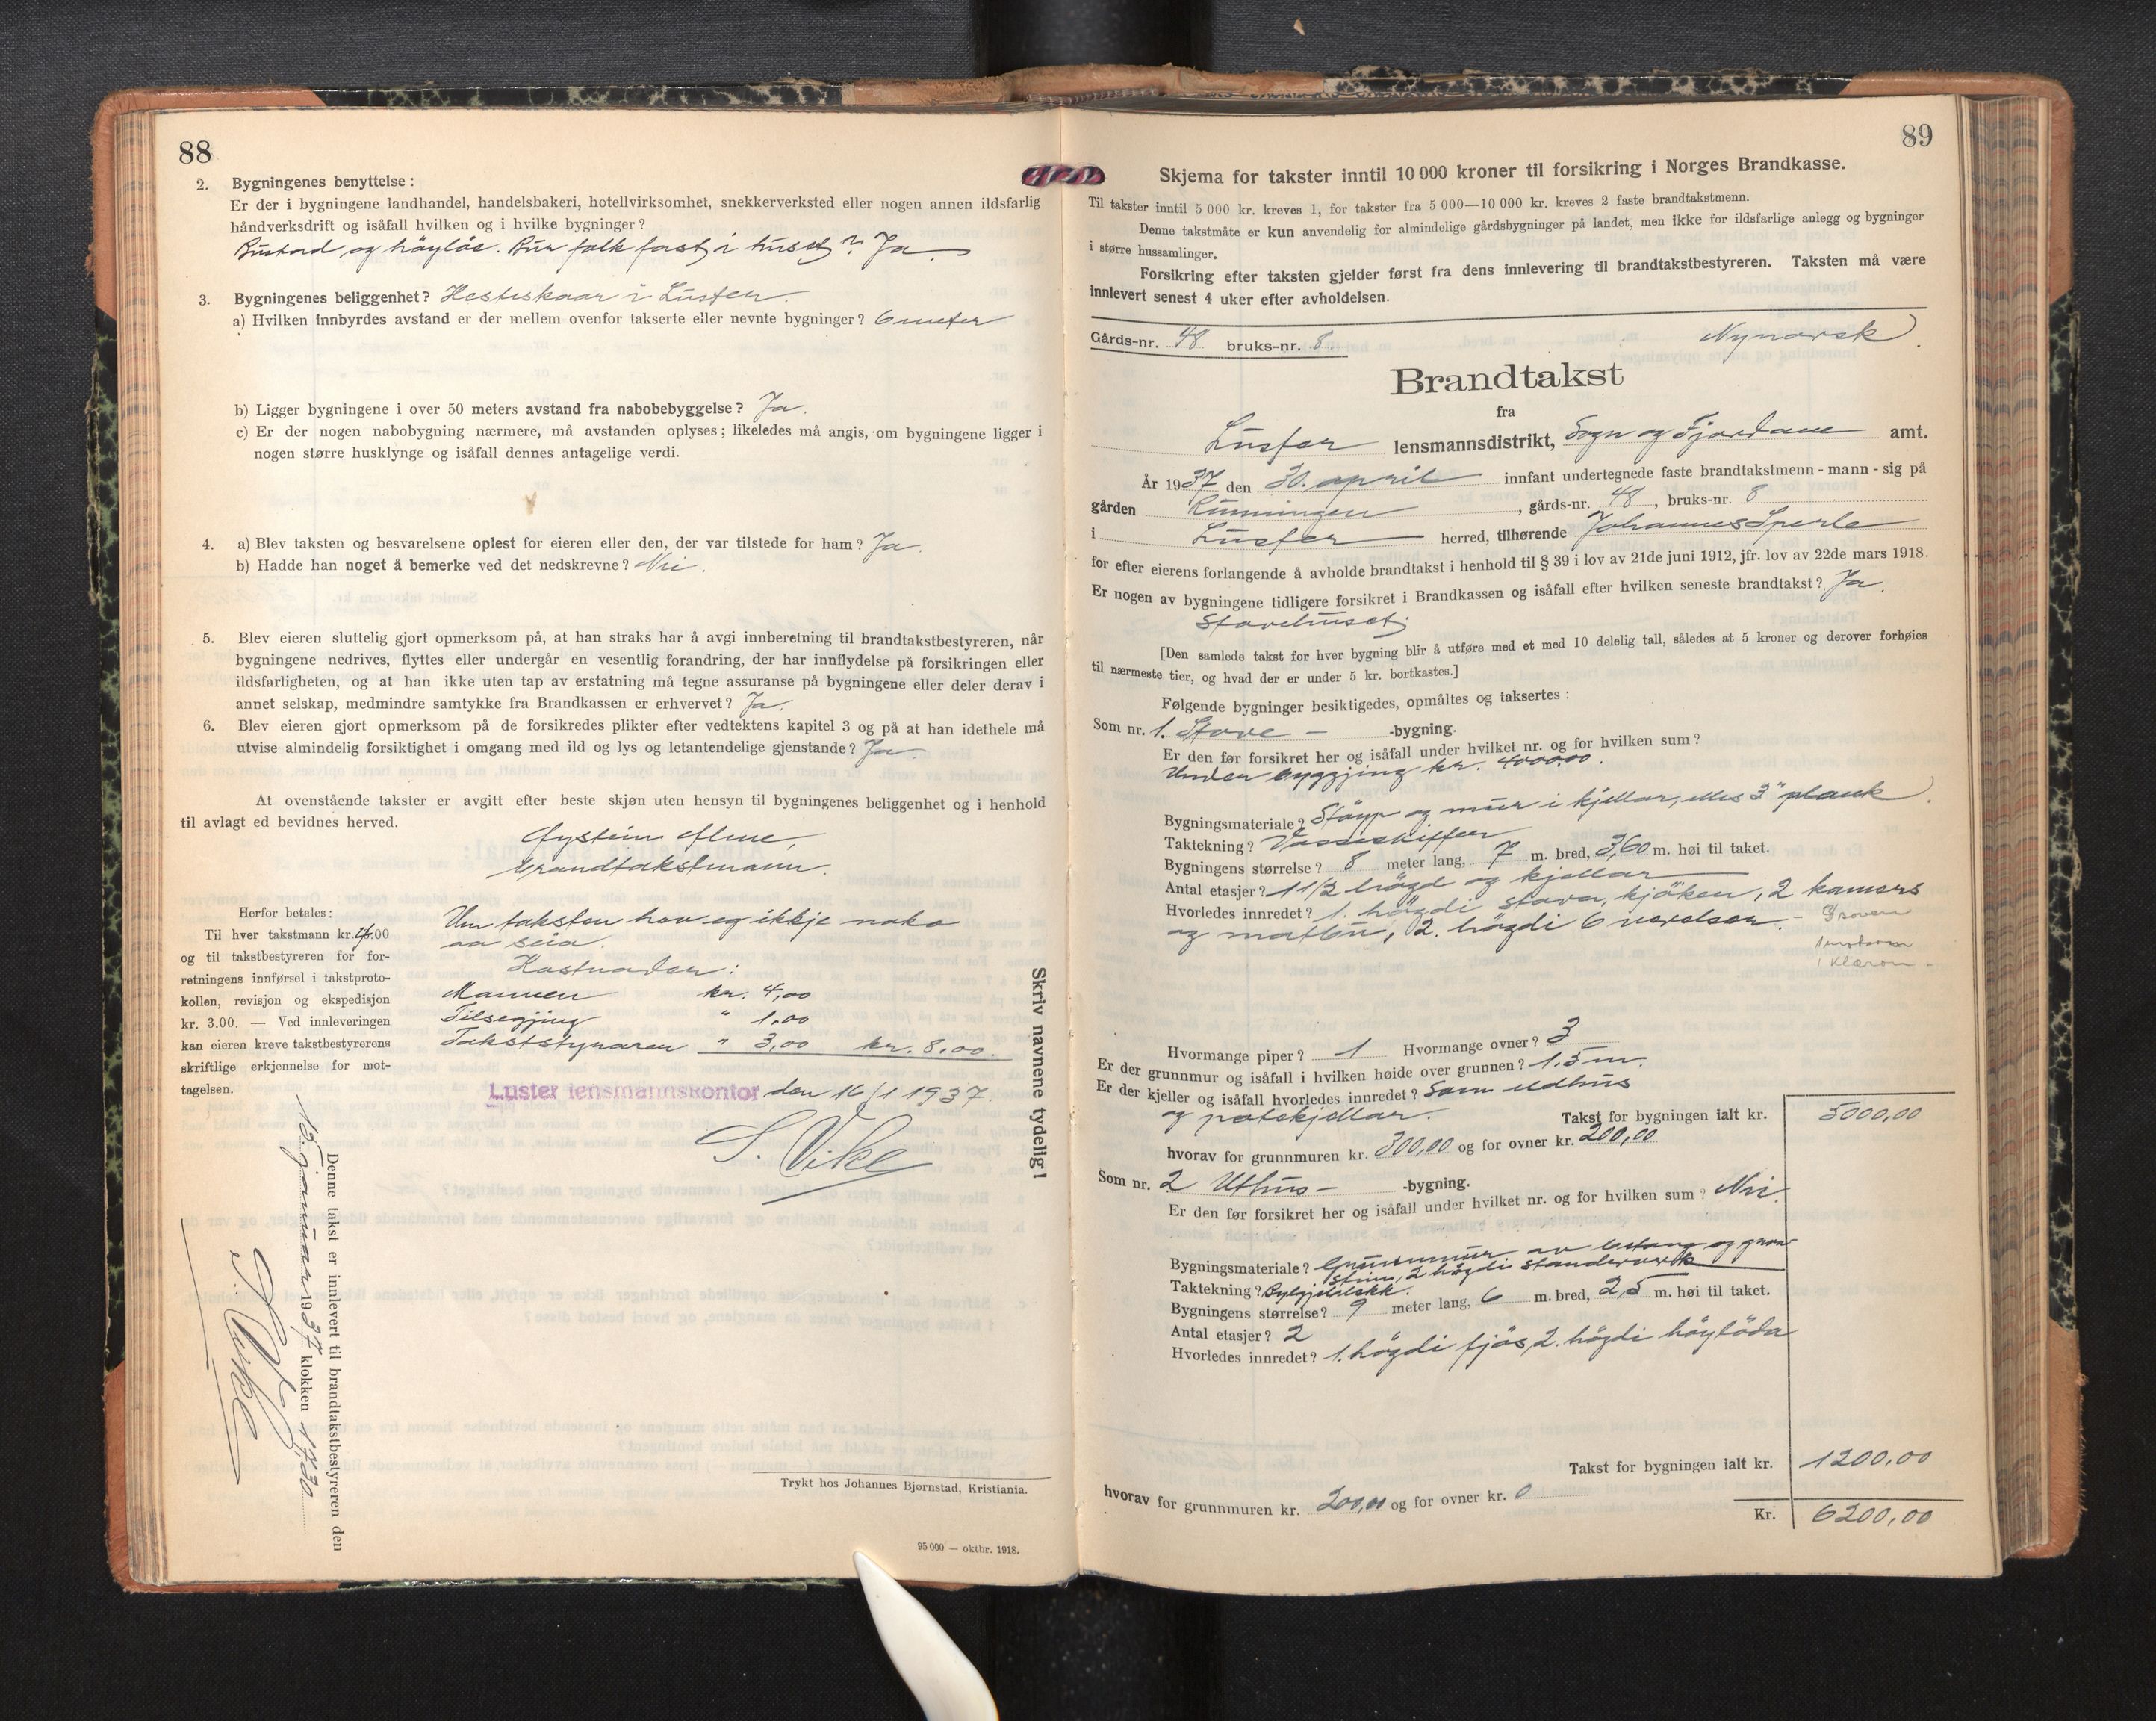 88
2. Bygningenes benyttelse:
Er der i bygningene landhandel, handelsbakeri, hotellvirksomhet, snekkerverksted eller nogen annen ildsfarlig
håndverksdrift og isåfall hvilken og i hvilke bygninger?
Bustad og høyløe. Bur folk fast i huset? Ja.
3. Bygningenes beliggenhet? Hesteskaar i Luster.
a) Hvilken innbyrdes avstand er der mellem ovenfor takserte eller nevnte bygninger? 6 meter
b) Ligger bygningene i over 50 meters avstand fra nabobebyggelse? Ja.
c) Er der nogen nabobygning nærmere, må avstanden oplyses; likeledes må angis, om bygningene ligger i
nogen større husklynge og isåfall dennes antagelige verdi.
4. a) Blev taksten og besvarelsene oplest for eieren eller den, der var tilstede for ham? Ja.
b) Hadde han noget å bemerke ved det nedskrevne? Nei.
5. Blev eieren sluttelig gjort opmerksom på, at han straks har å avgi innberetning til brandtakstbestyreren, når
bygningene nedrives, flyttes eller undergår en vesentlig forandring, der har innflydelse på forsikringen eller
ildsfarligheten, og at han ikke uten tap av erstatning må tegne assuranse på bygningene eller deler derav i
annet selskap, medmindre samtykke fra Brandkassen er erhvervet? Ja.
6. Blev eieren gjort opmerksom på de forsikredes plikter efter vedtektens kapitel 3 og på at han idethele må
utvise almindelig forsiktighet i omgang med ild og lys og letantendelige gjenstande? Ja.
At ovenstående takster er avgitt efter beste skjøn uten hensyn til bygningenes beliggenhet og i henhold
til avlagt ed bevidnes herved.
Øystein
brandtakstmann.
Herfor betales:
Til hver takstmann kr. 4.00
og til takstbestyreren for for-
retningens innførsel i takstproto-
kollen, revisjon og ekspedisjon
kr. 3.00. — Ved innleveringen
kan eieren kreve takstbestyrerens
skriftlige erkjennelse for mot-
tagelsen.
Um taksten hev eg ikkje noko
aa seia.
Kostnaden:
Mannen kr. 4,00
Tilsegjing " 1.00
Takststyraren " 3,00 kr. 8,00.
Luster lensmannskontor den 16/1 1937.
S. Vike
Skriv navnene tydelig!
Denne takst er innlevert til brandtakstbestyreren den
15. januar 1937 klokken 1730
S. Vike
Trykt hos Johannes Bjørnstad, Kristiania.
95 000 — oktbr. 1918.
89
Skjema for takster inntil 10 000 kroner til forsikring i Norges Brandkasse.
Til takster inntil 5 000 kr. kreves 1, for takster fra 5 000—10 000 kr. kreves 2 faste brandtakstmenn.
Denne takstmåte er kun anvendelig for almindelige gårdsbygninger på landet, men ikke for ildsfarlige anlegg og bygninger
i større hussamlinger.
Forsikring efter taksten gjelder først fra dens innlevering til brandtakstbestyreren. Taksten må være
innlevert senest 4 uker efter avholdelsen.
Gårds-nr. 48 bruks-nr. 8. Nynorsk
Brandtakst
fra
Luster lensmannsdistrikt, Sogn og Fjordane amt.
År 1937 den 30. april innfant undertegnede faste brandtakstmenn - mann - sig på
gården , gårds-nr. 48, bruks-nr. 8
i Luster herred, tilhørende Johannes Sperle
for efter eierens forlangende å avholde brandtakst i henhold til § 39 i lov av 21de juni 1912, jfr. lov av 22de mars 1918.
Er nogen av bygningene tidligere forsikret i Brandkassen og isåfall efter hvilken seneste brandtakst? Ja.
Stovehuset
[Den samlede takst for hver bygning blir å utføre med et med 10 delelig tall, således at 5 kroner og derover forhøies
til nærmeste tier, og hvad der er under 5 kr. bortkastes.]
Følgende bygninger besiktigedes, opmåltes og taksertes:
Som nr. 1. Stove - -bygning.
Er den før forsikret her og isåfall under hvilket nr. og for hvilken sum?
Under byggjing kr. 4000.00.
Bygningsmateriale? Støyp og mur i kjellar, elles 3" plank
Taktekning? Vosseskiffer
Bygningens størrelse? 8 meter lang, 7 m. bred, 3,60 m. høi til taket.
Antal etasjer? 1 1/2 høgd og kjellar
Hvorledes innredet? 1. høgdi stova, kjøken, 2 kamers
og matbu, 2. høgdi 6 verelser.
Hvormange piper? 1 Hvormange ovner? 3
Er der grunnmur og isåfall i hvilken høide over grunnen? 1.5 m.
Er der kjeller og isåfall hvorledes innredet? Som vedhus
og potekjellar. Takst for bygningen ialt kr. 5000,00
hvorav for grunnmuren kr. 300,00 og for ovner kr. 200,00
Som nr. 2 Uthus - -bygning.
Er den før forsikret her og isåfall under hvilket nr. og for hvilken sum? Nei.
Bygningsmateriale? Grunnmur av betong og graa-
stein, 2. høgdi standerverk
Taktekning? Bylgjeblekk.
Bygningens størrelse? 9 meter lang, 6 m. bred, 2,5 m. høi til taket.
Antal etasjer? 2
Hvorledes innredet? 1. høgdi fjøs, 2. høgdi høyløda
Takst for bygningen ialt kr. 1200,00
hvorav for grunnmuren kr. 200,00 og for ovner kr. 0
Kr. 6200,00